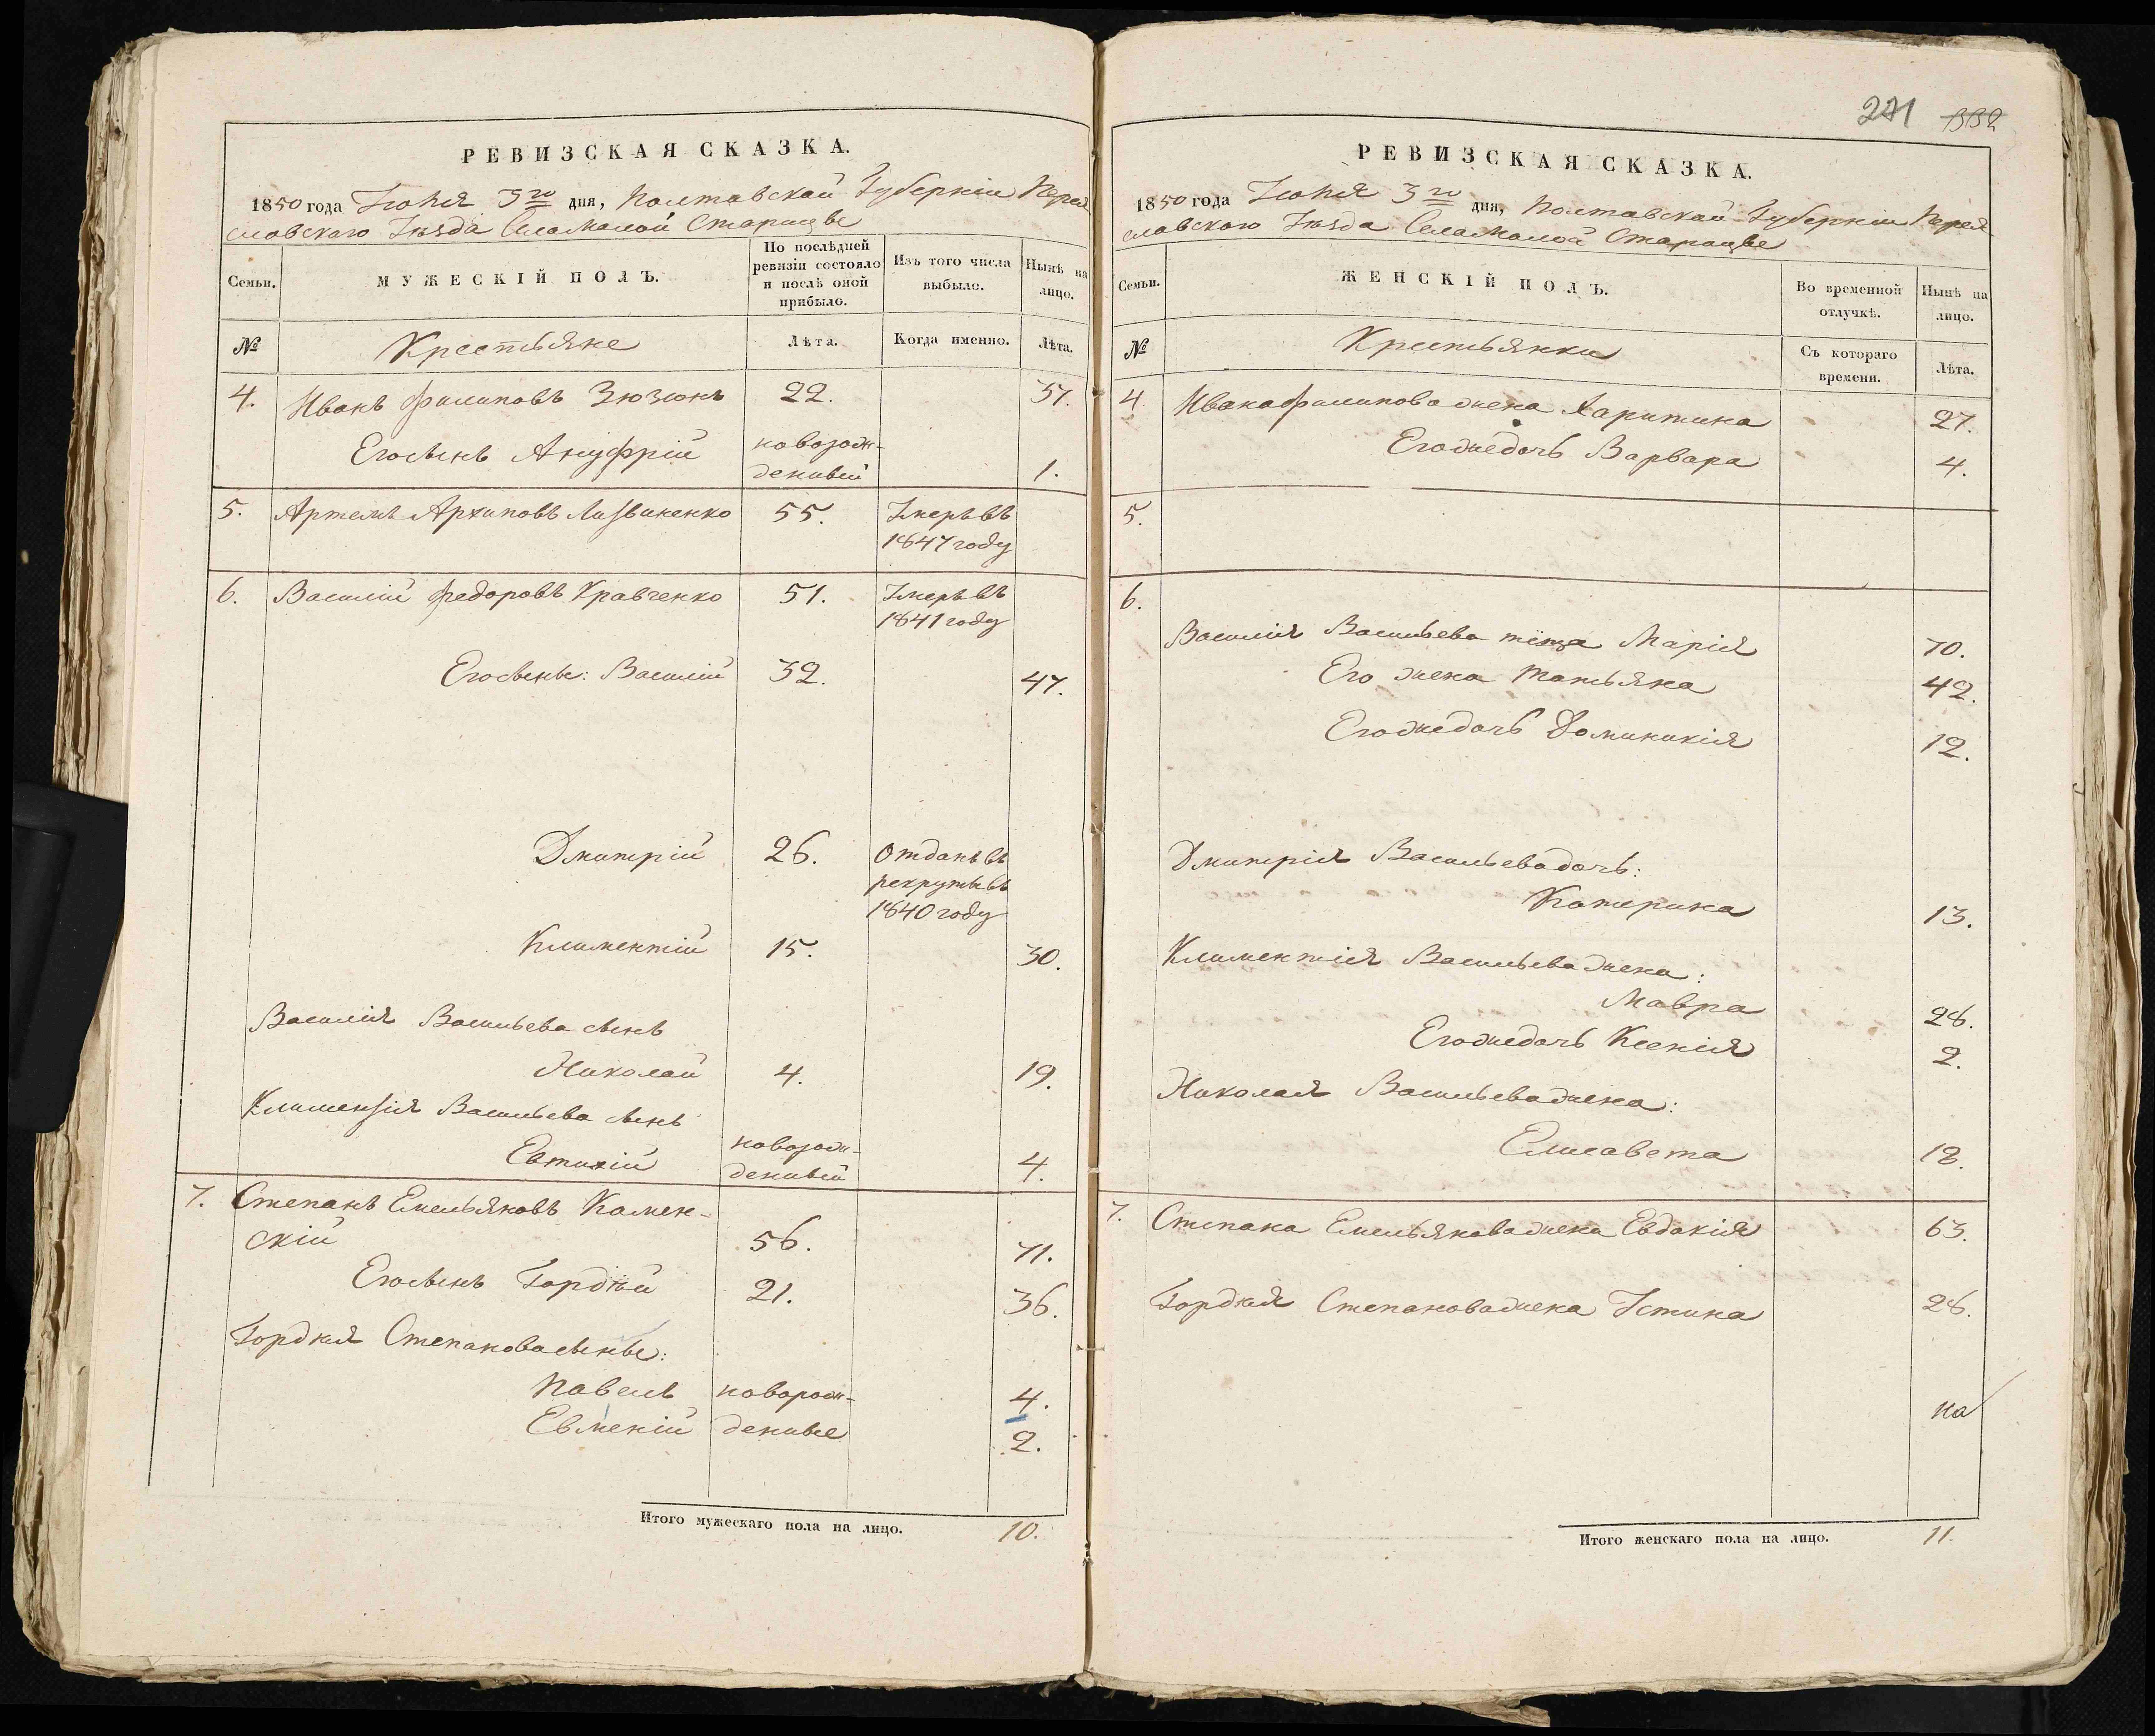 РЕВИЗСКАЯ СКАЗКА.
1850 года Іюня 3го дня, Полтавской Губерніи Перея
славскаго Уѣзда Села Малой Старицы
Семьи.
МУЖЕСКІЙ ПОЛЪ.
По послѣдней
ревизіи состояло
и послѣ оной
прибыло.
Изъ того числа
выбыло.
Нынѣ на
лицо.
№
Крестьяне
Лѣта.
Когда именно.
Лѣта.
4. Иванъ Филиповъ Зюзюнъ 22. 37.
Его сынъ Ануфрій новорож-
денный 1.
5. Артемъ Архиповъ Литвиненко 55. Умеръ въ
1847 году
6. Василій Федоровъ Кравченко 51. Умеръ въ
1841 году
Его сынъ: Василій 32. 47.
Дмитрій 26. Отданъ въ
рекруты въ
1840 году
Климентій 15. 30.
Василія Васильева сынъ
Николай 4. 19.
Климентія Васильева сынъ
Евтихій новорож-
денный 4.
7. Степанъ Емельяновъ Камен-
скій 56. 71.
Его сынъ Гордѣй 21. 36.
Гордѣя Степанова сыны:
Павелъ новорож- 4.
Евменій денные 2.
Итого мужескаго пола на лицо. 10.
221 332
РЕВИЗСКАЯ СКАЗКА.
1850 года Іюня 3го дня, Полтавской Губерніи Перея
славскаго Уѣзда Села Малой Старицы
Семьи.
ЖЕНСКІЙ ПОЛЪ.
Во временной
отлучкѣ.
Нынѣ на
лицо.
№
Крестьянки
Съ котораго
времени.
Лѣта.
4 Ивана Филипова жена Харитина 27.
Его же дочь Варвара 4.
5.
6.
Василія Васильева теща Марія 70.
Его жена Татьяна 42.
Его же дочь Доминикія 12.
Дмитрія Васильева дочь:
Катерина 13.
Климентія Васильева жена:
Мавра 28.
Его же дочь Ксенія 2.
Николая Васильева жена:
Елисавета 18.
7. Степана Емельянова жена Евдокія 63.
Гордѣя Степанова жена Устина 28.
на
Итого женскаго пола на лицо. 11.